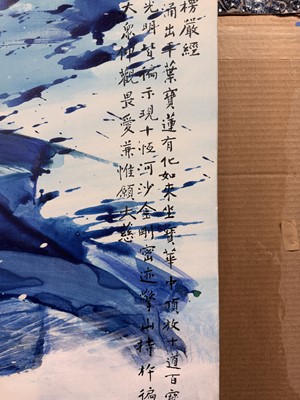 楞嚴經
涌出千葉寶蓮有化如來坐寶華中頂放十道百寶
光明皆徧示現十恒河沙金剛密迹擎山持杵徧
大眾仰觀畏愛兼惟願大慈